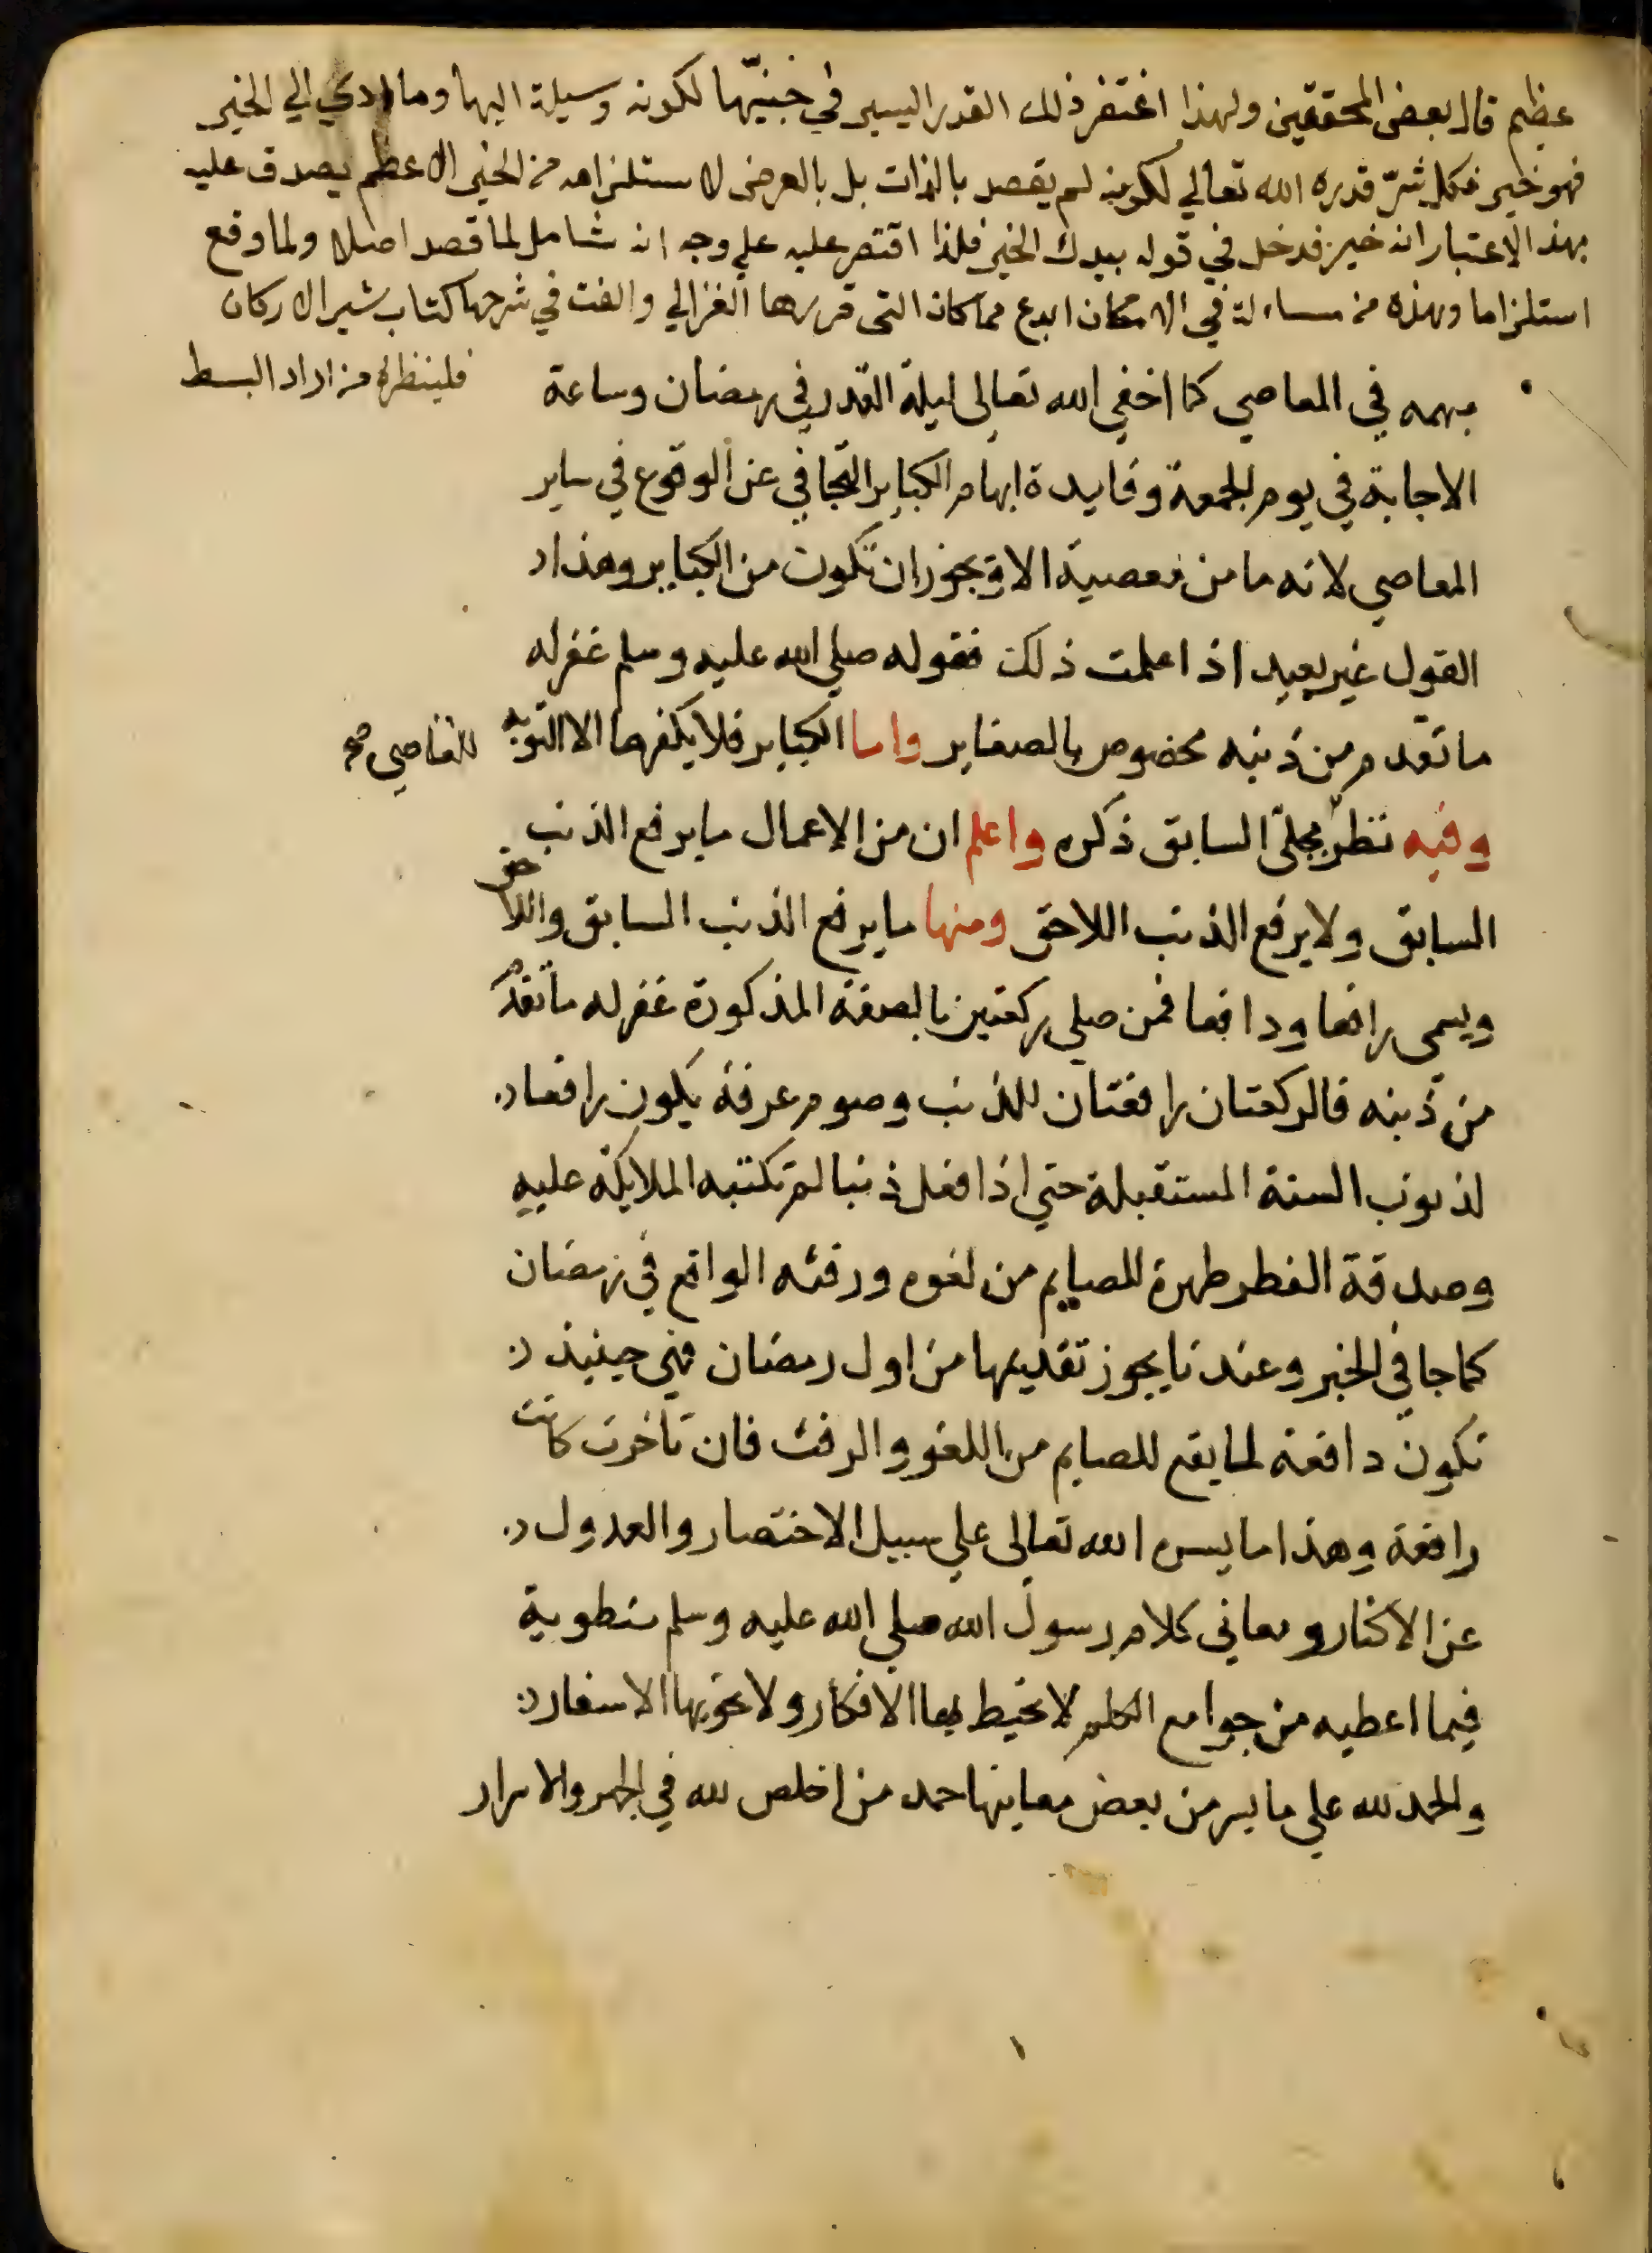 عظيم قال بعض المحققين ولهذا اغتفر ذلك القدر اليسير في جنبّها لكونه وسيلة اليها وما ادي الي الخير
فهو خير فكل شرّ قدره الله تعالي لكونه لم يقصد بالذات بل بالعرض لاستلزامه من الخير الاعظم يصدق عليه
بهذا الاعتبار انه خير فدخل في قوله بيدك الخير فلذا اقتصر عليه علي وجه انه شامل لما قصد اصلا ولما وقع
استلزاما وهذه من مساءلة في الامكان ابدع مما كان التي قررها الغزالي والفت في شرحها كتاب تشييد الاركان
فلينظره من اراد البسط
مبهمه في المعاصي كما اخفي الله تعالى ليلة القدر في رمضان وساعة
الاجابة في يوم الجمعة وفايدة ابهام الكباير التجافي عن الوقوع في ساير
المعاصي لانه ما من معصية الا ويجوز ان تكون من الكباير وهذا
القول غير بعيد اذا علمت ذلك فقوله صلي الله عليه وسلم غفر له
ما تقدم من ذنبه مخصوص بالصغاير واما الكباير فلا يكفرها الا التوبة
للقاضي صح
وفيه نظر مجلى السابق ذكره واعلم ان من الاعمال ما يرفع الذنب
السابق ولا يرفع الذنب اللاحق ومنها ما يرفع الذنب السابق واللاحق
ويسمى رافعا ودافعا فمن صلي ركعتين بالصفة المذكورة غفر له ما تقدم
من ذنبه فالركعتان رافعتان للذنب وصوم عرفة يكون رافعا
لذنوب السنة المستقبلة حتي اذا فعل ذنبا لم تكتبه الملايكة عليه
وصدقة الفطر طهرة للصايم من لغوه ورفثه الواقع في رمضان
كما جا في الخبر وعندنا يجوز تقديمها من اول رمضان فهي حينيذ
تكون دافعة لما يقع للصايم من اللغو والرفث فان تاخرت كانت
رافعة وهذا ما يسره الله تعالى علي سبيل الاختصار والعدول
عن الاكثار ومعاني كلام رسول الله صلي الله عليه وسلم منطوية
فيما اعطيه من جوامع الكلم لا تحيط بها الافكار ولا تحويها الاسفار
والحمد لله علي ما يسر من بعض معاينها حمد من اخلص لله في الجهر والاسرار